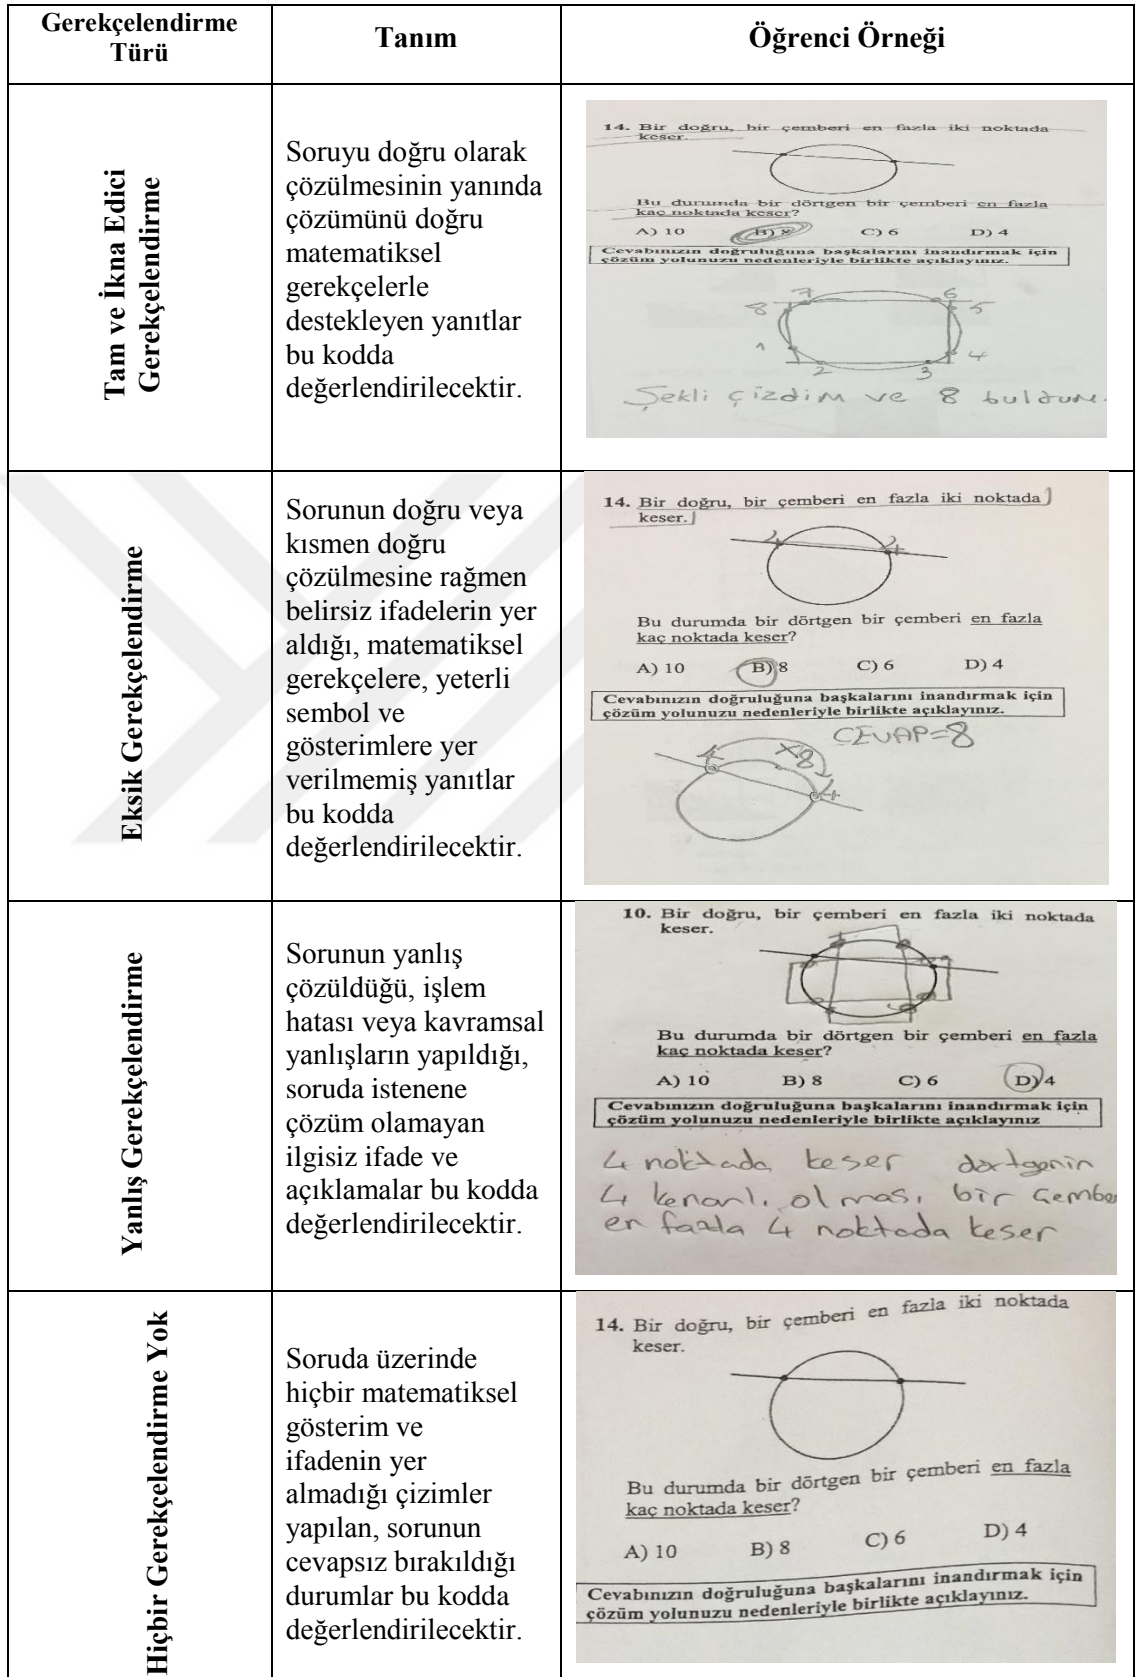 Gerekçelendirme
Türü
Tanım
Öğrenci Örneği
Tam ve İkna Edici
Gerekçelendirme
Soruyu doğru olarak
çözülmesinin yanında
çözümünü doğru
matematiksel
gerekçelerle
destekleyen yanıtlar
bu kodda
değerlendirilecektir.
14. Bir doğru, bir çemberi en fazla iki noktada
keser.
Bu durumda bir dörtgen bir çemberi en fazla
kaç noktada keser?
A) 10 B) 8 C) 6 D) 4
Cevabınızın doğruluğuna başkalarını inandırmak için
çözüm yolunuzu nedenleriyle birlikte açıklayınız.
8 7 6 5
1 2 3 4
Şekli çizdim ve 8 buldum.
Eksik Gerekçelendirme
Sorunun doğru veya
kısmen doğru
çözülmesine rağmen
belirsiz ifadelerin yer
aldığı, matematiksel
gerekçelere, yeterli
sembol ve
gösterimlere yer
verilmemiş yanıtlar
bu kodda
değerlendirilecektir.
14. Bir doğru, bir çemberi en fazla iki noktada
keser.
Bu durumda bir dörtgen bir çemberi en fazla
kaç noktada keser?
A) 10 B) 8 C) 6 D) 4
Cevabınızın doğruluğuna başkalarını inandırmak için
çözüm yolunuzu nedenleriyle birlikte açıklayınız.
CEVAP=8
4 8 4
Yanlış Gerekçelendirme
Sorunun yanlış
çözüldüğü, işlem
hatası veya kavramsal
yanlışların yapıldığı,
soruda istenene
çözüm olamayan
ilgisiz ifade ve
açıklamalar bu kodda
değerlendirilecektir.
10. Bir doğru, bir çemberi en fazla iki noktada
keser.
Bu durumda bir dörtgen bir çemberi en fazla
kaç noktada keser?
A) 10 B) 8 C) 6 D) 4
Cevabınızın doğruluğuna başkalarını inandırmak için
çözüm yolunuzu nedenleriyle birlikte açıklayınız
4 noktada keser dörtgenin
4 kenarlı olması bir çember
en fazla 4 noktada keser
Hiçbir Gerekçelendirme Yok
Soruda üzerinde
hiçbir matematiksel
gösterim ve
ifadenin yer
almadığı çizimler
yapılan, sorunun
cevapsız bırakıldığı
durumlar bu kodda
değerlendirilecektir.
14. Bir doğru, bir çemberi en fazla iki noktada
keser.
Bu durumda bir dörtgen bir çemberi en fazla
kaç noktada keser?
A) 10 B) 8 C) 6 D) 4
Cevabınızın doğruluğuna başkalarını inandırmak için
çözüm yolunuzu nedenleriyle birlikte açıklayınız.